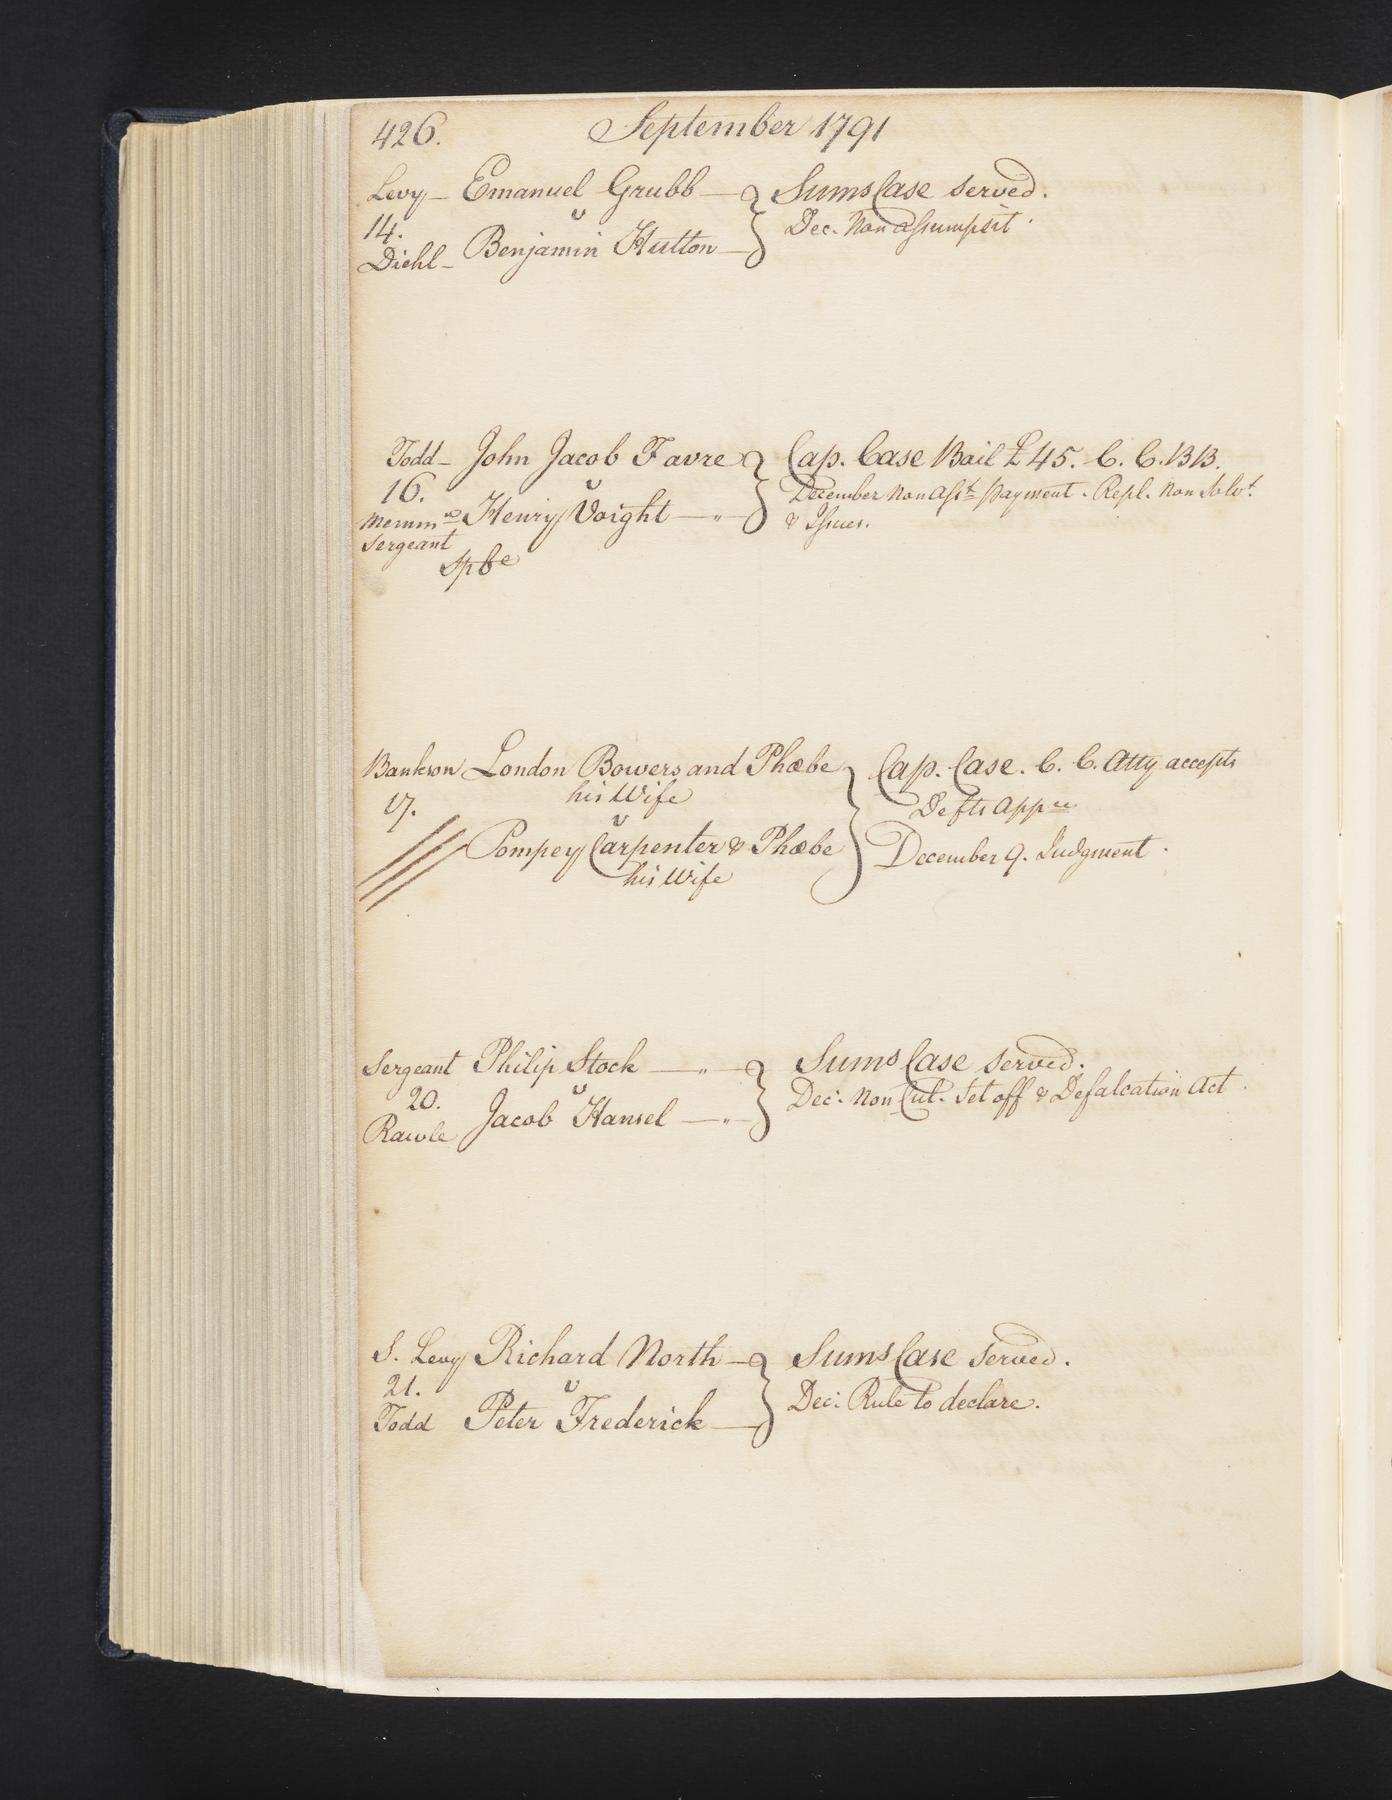 426. September 1791
Levy — Emanuel Grubb — Sums Case served.
14. v Dec. Non Assumpsit.
Diehl — Benjamin Hutton —
Todd — John Jacob Favre Cap. Case Bail £45. C. C. B B.
16. v December Non Asst. payment. Repl. Non Solvt.
Memmd Henry Voight — " — & Issues.
Sergeant
Spbe
Bankson London Bowers and Phœbe Cap. Case. C. C. Atty accepts
his Wife Defts Appce
17. v
Pompey Carpenter & Phœbe December 9. Judgment.
his Wife
Sergeant Philip Stock — " — Sums Case served.
20. v Dec. Non Cul. Set off & Defalcation Act.
Rawle Jacob Hansel — " —
S. Levy Richard North — Sums Case served.
21. v Dec: Rule to declare.
Todd Peter Frederick —